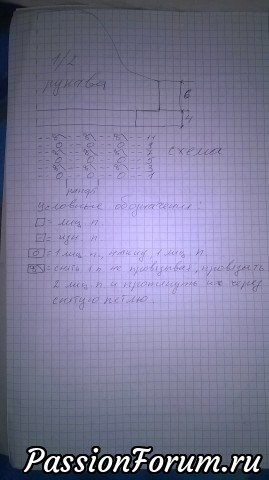 1/2
рукава
6
4
схема
рапорт
Условные обозначения:
= лиц п.
- = изн п.
O = 1 лиц п., накид, 1 лиц п.
= снять 1 п не провязывая, провязать
2 лиц п и протянуть их через
снятую петлю.
PassionForum.ru